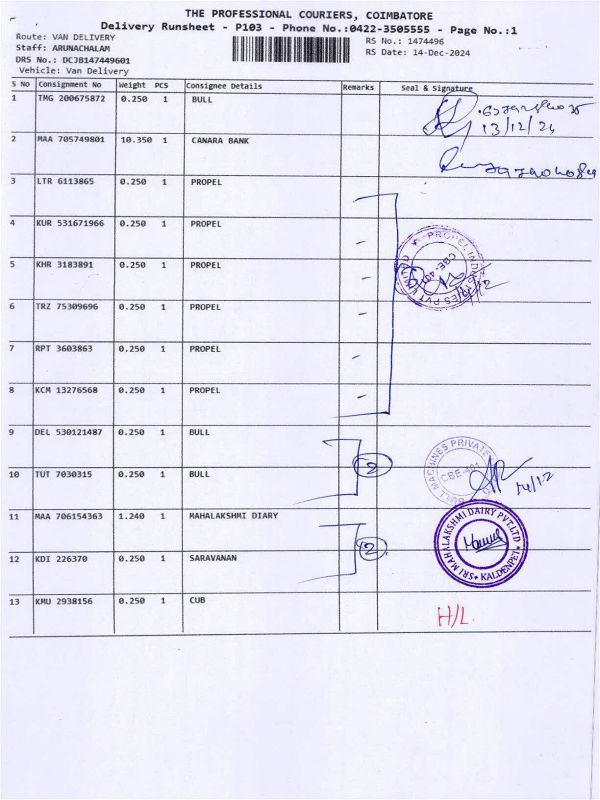 THE PROFESSIONAL COURIERS, COIMBATORE
Delivery Runsheet - P103 - Phone No.:0422-3505555 - Page No.:1
Route: VAN DELIVERY
RS No.: 1474496
Staff: ARUNACHALAM
RS Date: 14-Dec-2024
DRS No.: DCJB147449601
Vehicle: Van Delivery
S No Consignment No Weight PCS Consignee Details Remarks Seal & Signature
1 TMG 200675872 0.250 1 BULL
13/12/24
2 MAA 705749801 10.350 1 CANARA BANK
3 LTR 6113865 0.250 1 PROPEL
4 KUR 531671966 0.250 1 PROPEL
5 KHR 3183891 0.250 1 PROPEL
PROPEL INDUSTRIES PVT LIMITED
6 TRZ 75309696 0.250 1 PROPEL
7 RPT 3603863 0.250 1 PROPEL
8 KCM 13276568 0.250 1 PROPEL
9 DEL 530121487 0.250 1 BULL
2
BULL MACHINES PRIVATE
CBE-401
14/12
10 TUT 7030315 0.250 1 BULL
11 MAA 706154363 1.240 1 MAHALAKSHMI DIARY
2
SRI MAHALAKSHMI DAIRY PVT.LTD
KALDENPET
12 KDI 226370 0.250 1 SARAVANAN
13 KMU 2938156 0.250 1 CUB
H/L